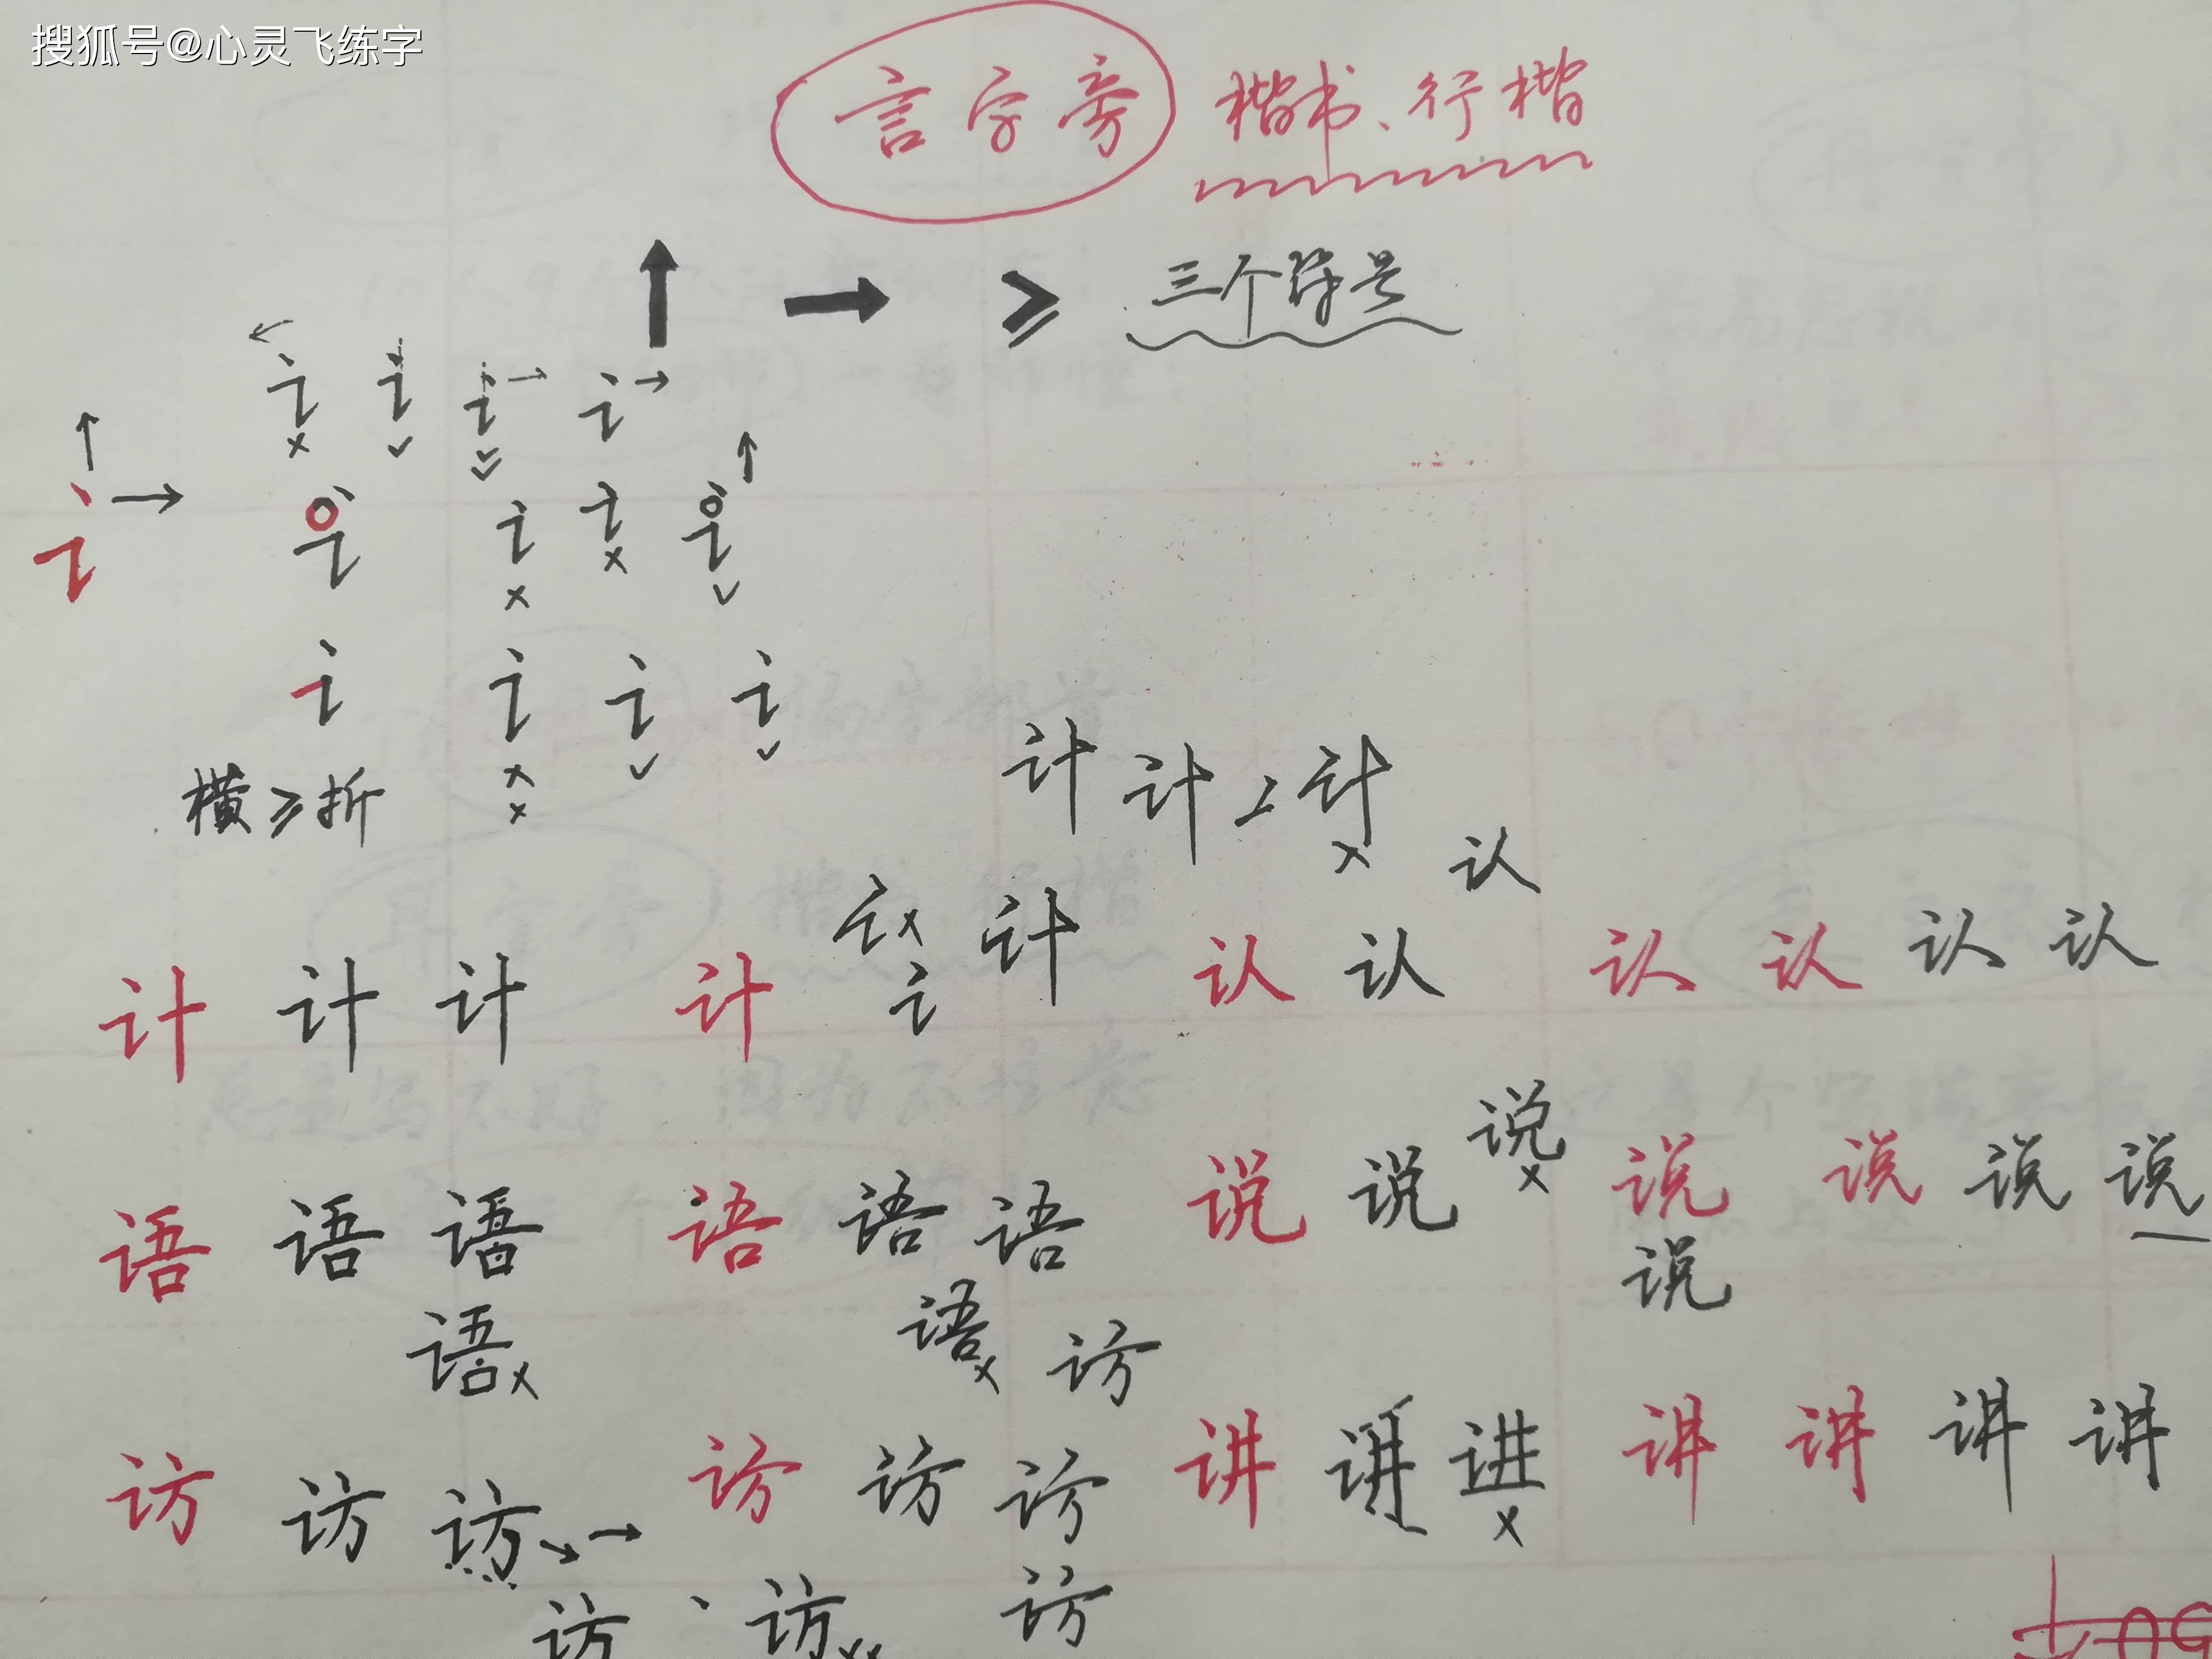 搜狐号@心灵飞练字
言字旁 楷书、行楷
↑ → ≥ 三个符号
← 讠 讠 讠→ 讠→
× ✓ ✓✓
↑ 讠→ 讠 讠 讠 讠 ↑
× × ✓
讠 讠 讠 讠
横≥折 ×× ✓ ✓
计 计 计
× 认
讠× 计
计 计 计 计 讠 认 认 认 认 认 认
说×
语 语 语 语 语 语 说 说 说 说 说 说
说
语× 语× 访
访 访 访 → 访 访 访 讲 讲 进 讲 讲 讲 讲
×
访 访 ×× 访